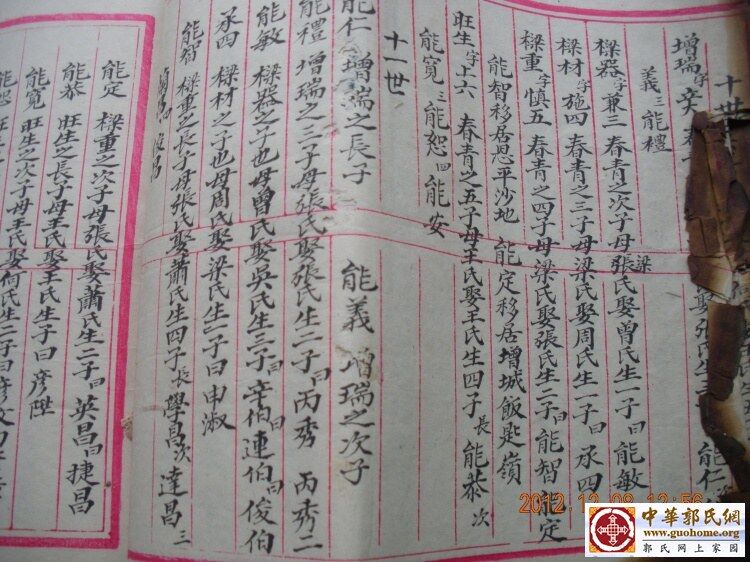 十世
增瑞字 娶張氏生三 能仁
義三能禮
樑器字兼三 春青之次子母張氏娶曾氏生一子曰 能敏
梁
樑材字施四 春青之三子母梁氏娶周氏生一子曰 承四
樑重字慎五 春青之四子母梁氏娶張氏生二子曰 能智能定
能智移居恩平沙地 能定移居增城飯匙嶺
旺生字上六 春青之五子母王氏娶王氏生四子長 能恭次
能寬三能恕四能安
十一世
能仁 增瑞之長子 能義 增瑞之次子
能禮 增瑞之三子母張氏娶張氏生二子曰 丙秀 丙秀二
能敏 樑器之子也母曾氏娶吳氏生三子曰辛伯曰連伯曰俊伯
承四 樑材之子也母周氏娶梁氏生一子曰 申淑
能智 樑重之長子母張氏娶蕭氏生四子長學昌次達昌三
昌
能定 樑重之次子母張氏娶蕭氏生二子曰英昌曰捷昌
能恭 旺生之長子母王氏娶王氏生子曰彥陞
能寬 旺生之次子母王氏娶何氏生二子曰彥
能恕 旺
2012.12.08 12:56
中華郭氏網
www.guohome.org
郭氏网上家园